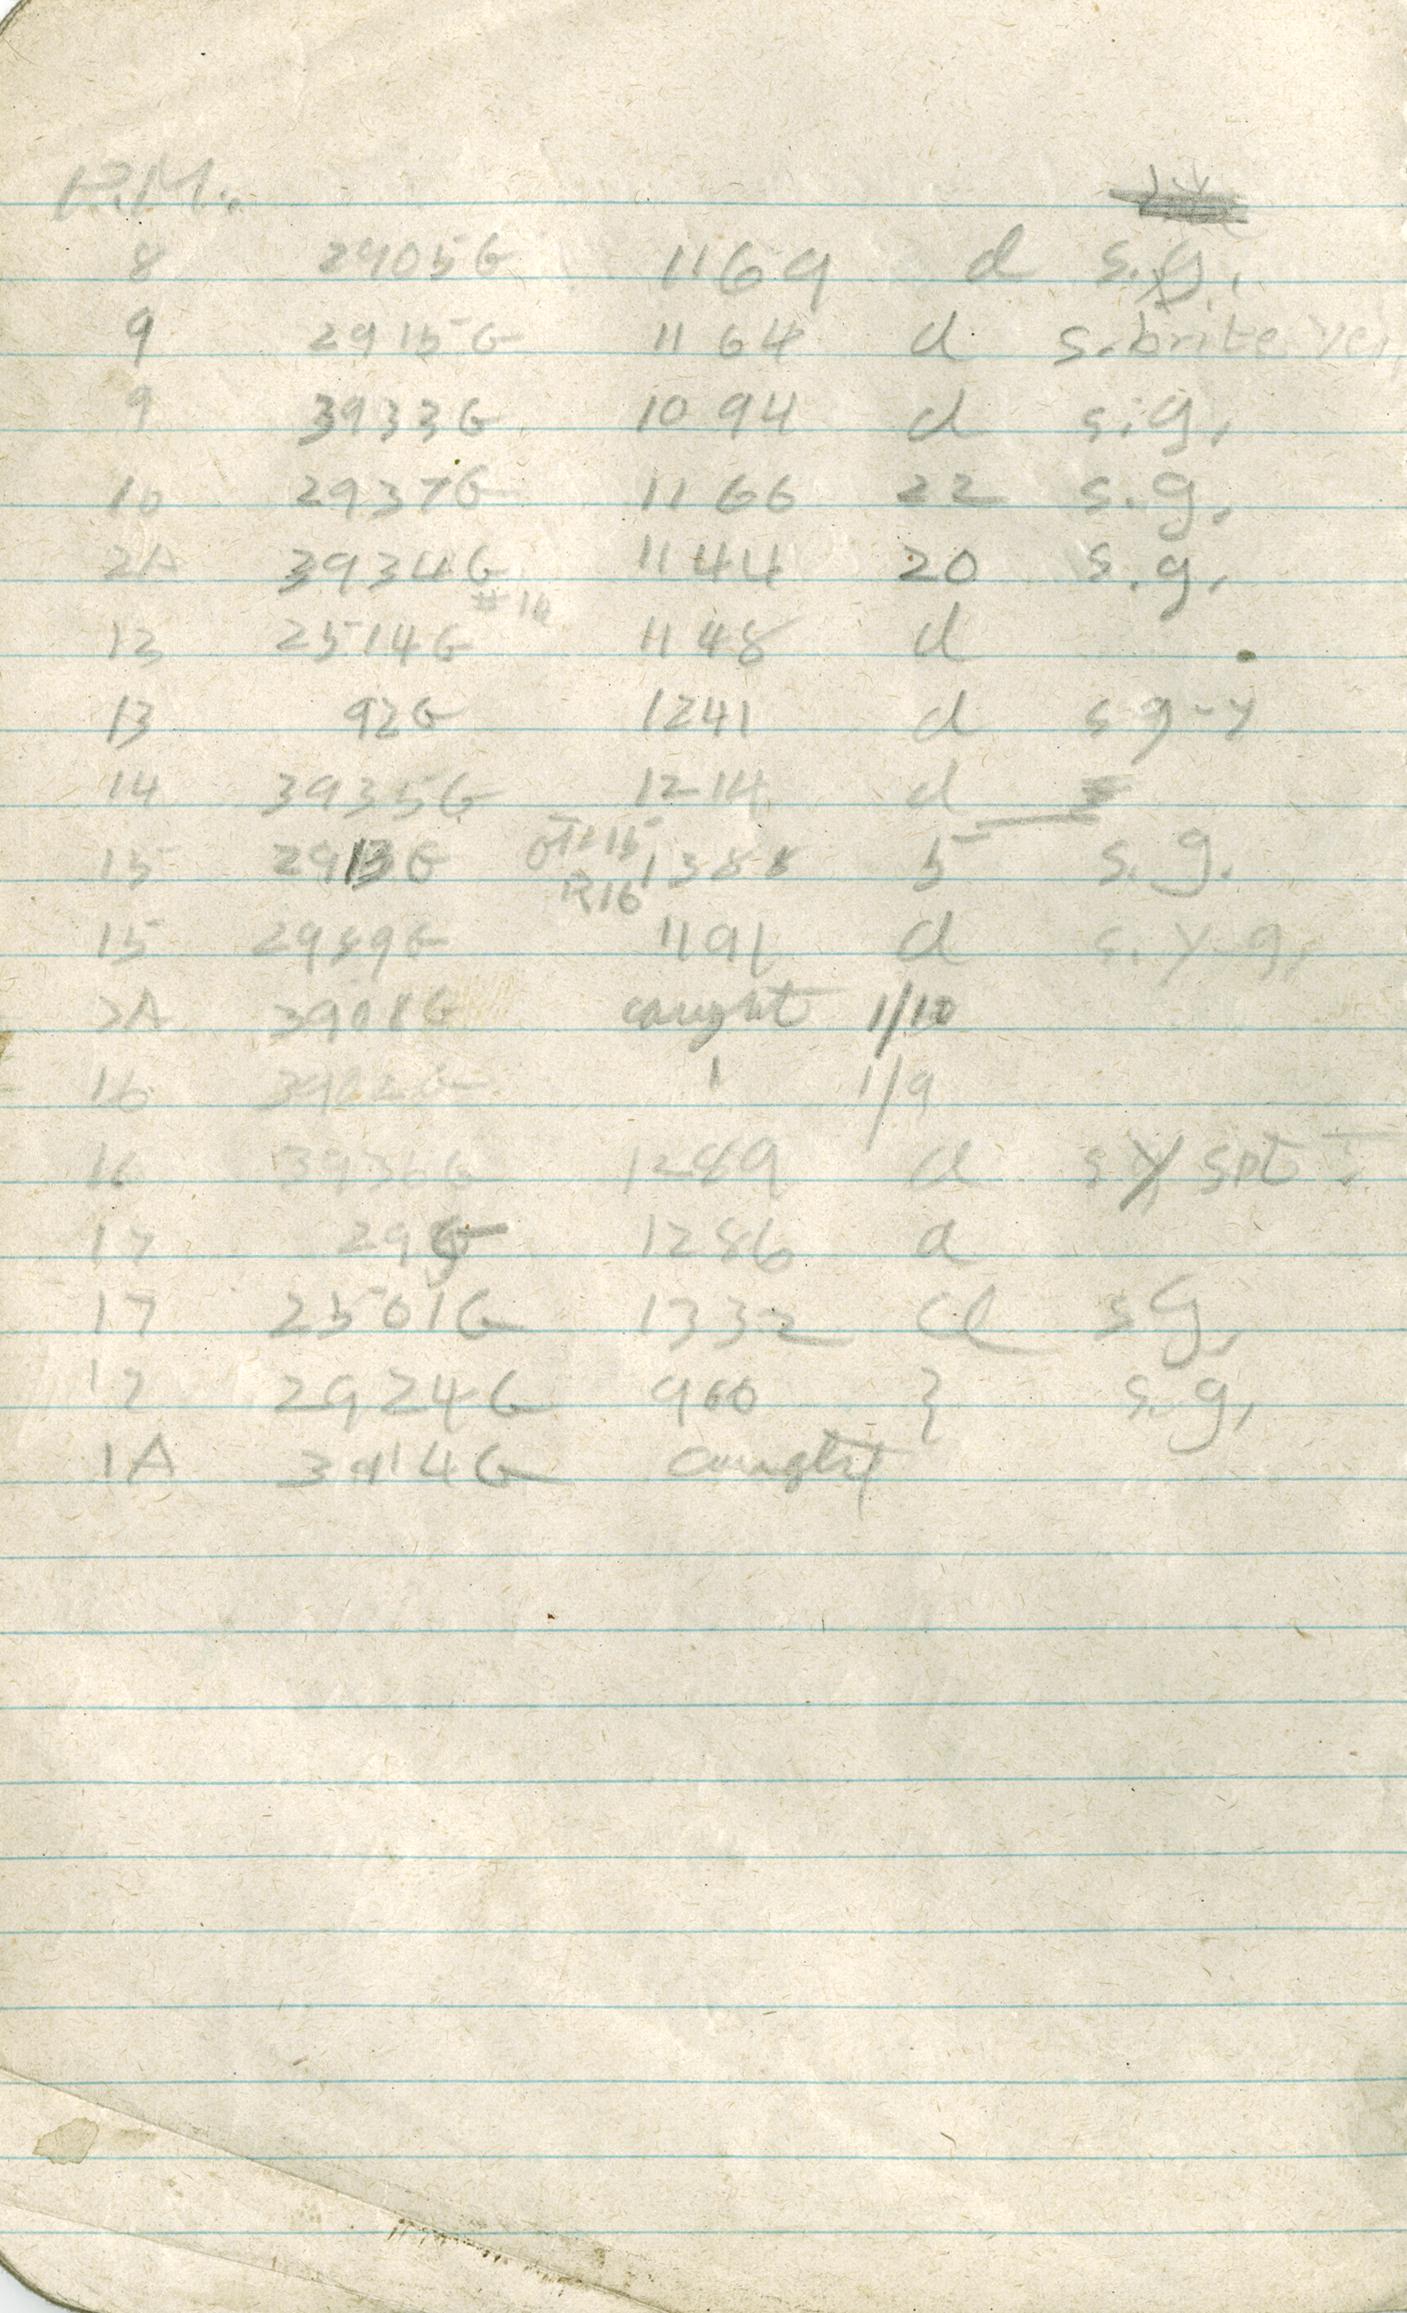 P.M.
8 2905G 1169 d s.g.
9 2915G 1164 d s. brite
9 3933G 1094 d s.g.
10 2937G 1166 22 s.g.
2A 3934G 1144 20 s.g.
#14
13 2514G 1148 d
13 92G 1241 d s g-y
14 3935G 1214 d
15 2913G 1388 5 s.g.
R16
15 2989G 1191 d s.y.g.
2A 3908G caught 1/10
16 1/9
16 3936G 1289 d s spt
17 29G 1286 d
17 2501G 1332 d s g.
17 2924G 960 } s.g.
1A 3914G caught